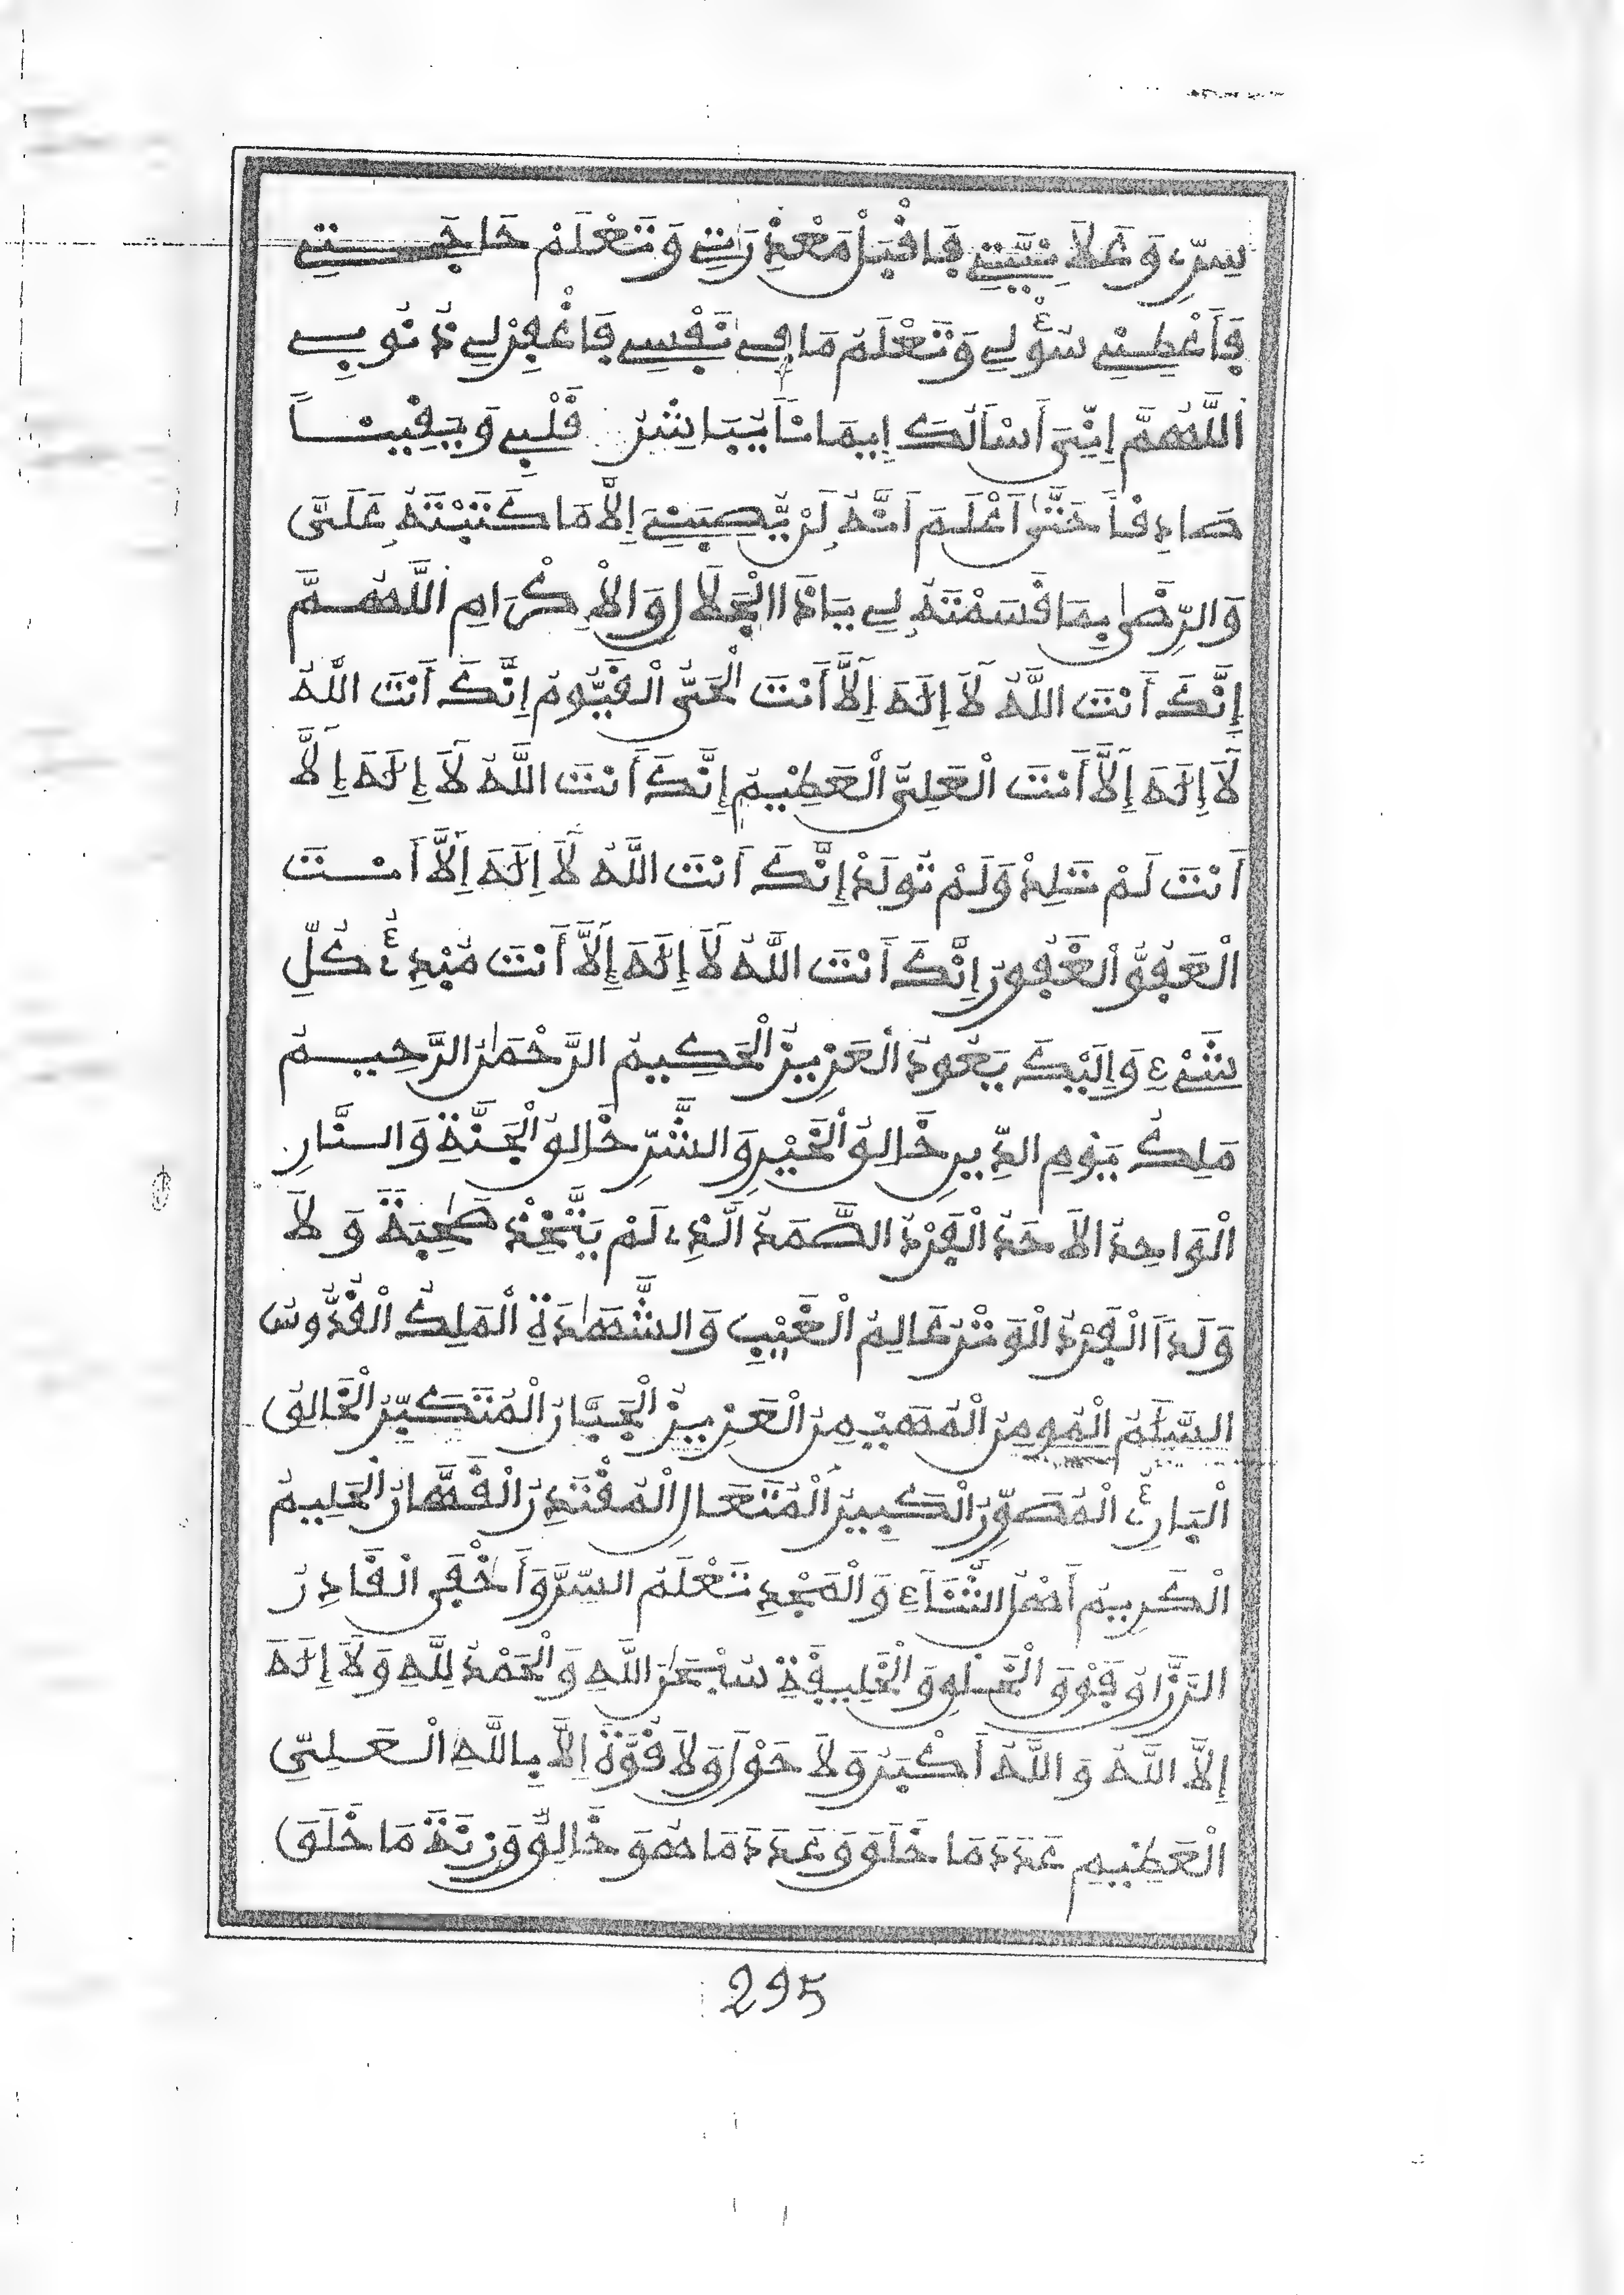 سِرِّي وَعَلَانِيَّتِي فَاقْبَلْ مَعْذِرَتِي وَتَعْلَمْ حَاجَتِي
فَأَعْطِنِي سُؤْلِي وَتَعْلَمُ مَا فِي نَفْسِي فَاغْفِرْ لِي ذُنُوبِي
اللَّهُمَّ إِنِّي أَسْأَلُكَ إِيمَانًا يُبَاشِرُ قَلْبِي وَيَقِينًا
صَادِقًا حَتَّى أَعْلَمَ أَنَّهُ لَنْ يُّصِيبَنِي إِلَّا مَا كَتَبْتَهُ عَلَيَّ
وَالرِّضَى بِمَا قَسَمْتَهُ لِي يَا ذَا الْجَلَالِ وَالْإِكْرَامِ اللَّهُمَّ
إِنَّكَ أَنْتَ اللَّهُ لَا إِلَهَ إِلَّا أَنْتَ الْحَيُّ الْقَيُّومُ إِنَّكَ أَنْتَ اللَّهُ
لَا إِلَهَ إِلَّا أَنْتَ الْعَلِيُّ الْعَظِيمُ إِنَّكَ أَنْتَ اللَّهُ لَا إِلَهَ إِلَّا
أَنْتَ لَمْ تَلِدْ وَلَمْ تُولَدْ إِنَّكَ أَنْتَ اللَّهُ لَا إِلَهَ إِلَّا أَنْتَ
الْعَفُوُّ الْغَفُورُ إِنَّكَ أَنْتَ اللَّهُ لَا إِلَهَ إِلَّا أَنْتَ مُبْدِئُ كُلِّ
شَيْءٍ وَإِلَيْكَ يَعُودُ الْعَزِيزُ الْحَكِيمُ الرَّحْمَٰنُ الرَّحِيمُ
مَلِكُ يَوْمِ الدِّينِ خَالِقُ الْخَيْرِ وَالشَّرِّ خَالِقُ الْجَنَّةِ وَالنَّارِ
الْوَاحِدُ الْأَحَدُ الْفَرْدُ الصَّمَدُ الَّذِي لَمْ يَتَّخِذْ صَٰحِبَةً وَلَا
وَلَدًا الْفَرْدُ الْوَتْرُ عَالِمُ الْغَيْبِ وَالشَّهَٰدَةِ الْمَلِكُ الْقُدُّوسُ
السَّلَٰمُ الْمُومِنُ الْمُهَيْمِنُ الْعَزِيزُ الْجَبَّارُ الْمُتَكَبِّرُ الْخَالِقُ
الْبَارِئُ الْمُصَوِّرُ الْكَبِيرُ الْمُتَعَالِ الْمُقْتَدِرُ الْقَهَّارُ الْحَلِيمُ
الْكَرِيمُ أَهْلُ الثَّنَاءِ وَالْمَجْدِ تَعْلَمُ السِّرَّ وَأَخْفَى الْقَادِرُ
الرَّزَّاقُ فَوْقَ الْخَلْقِ وَالْخَلِيقَةِ سُبْحَٰنَ اللَّهِ وَالْحَمْدُ لِلَّهِ وَلَا إِلَهَ
إِلَّا اللَّهُ وَاللَّهُ أَكْبَرُ وَلَا حَوْلَ وَلَا قُوَّةَ إِلَّا بِاللَّهِ الْعَلِيِّ
الْعَظِيمِ عَدَدَ مَا خَلَقَ وَعَدَدَ مَا هُوَ خَالِقٌ وَزِنَةَ مَا خَلَقَ
295